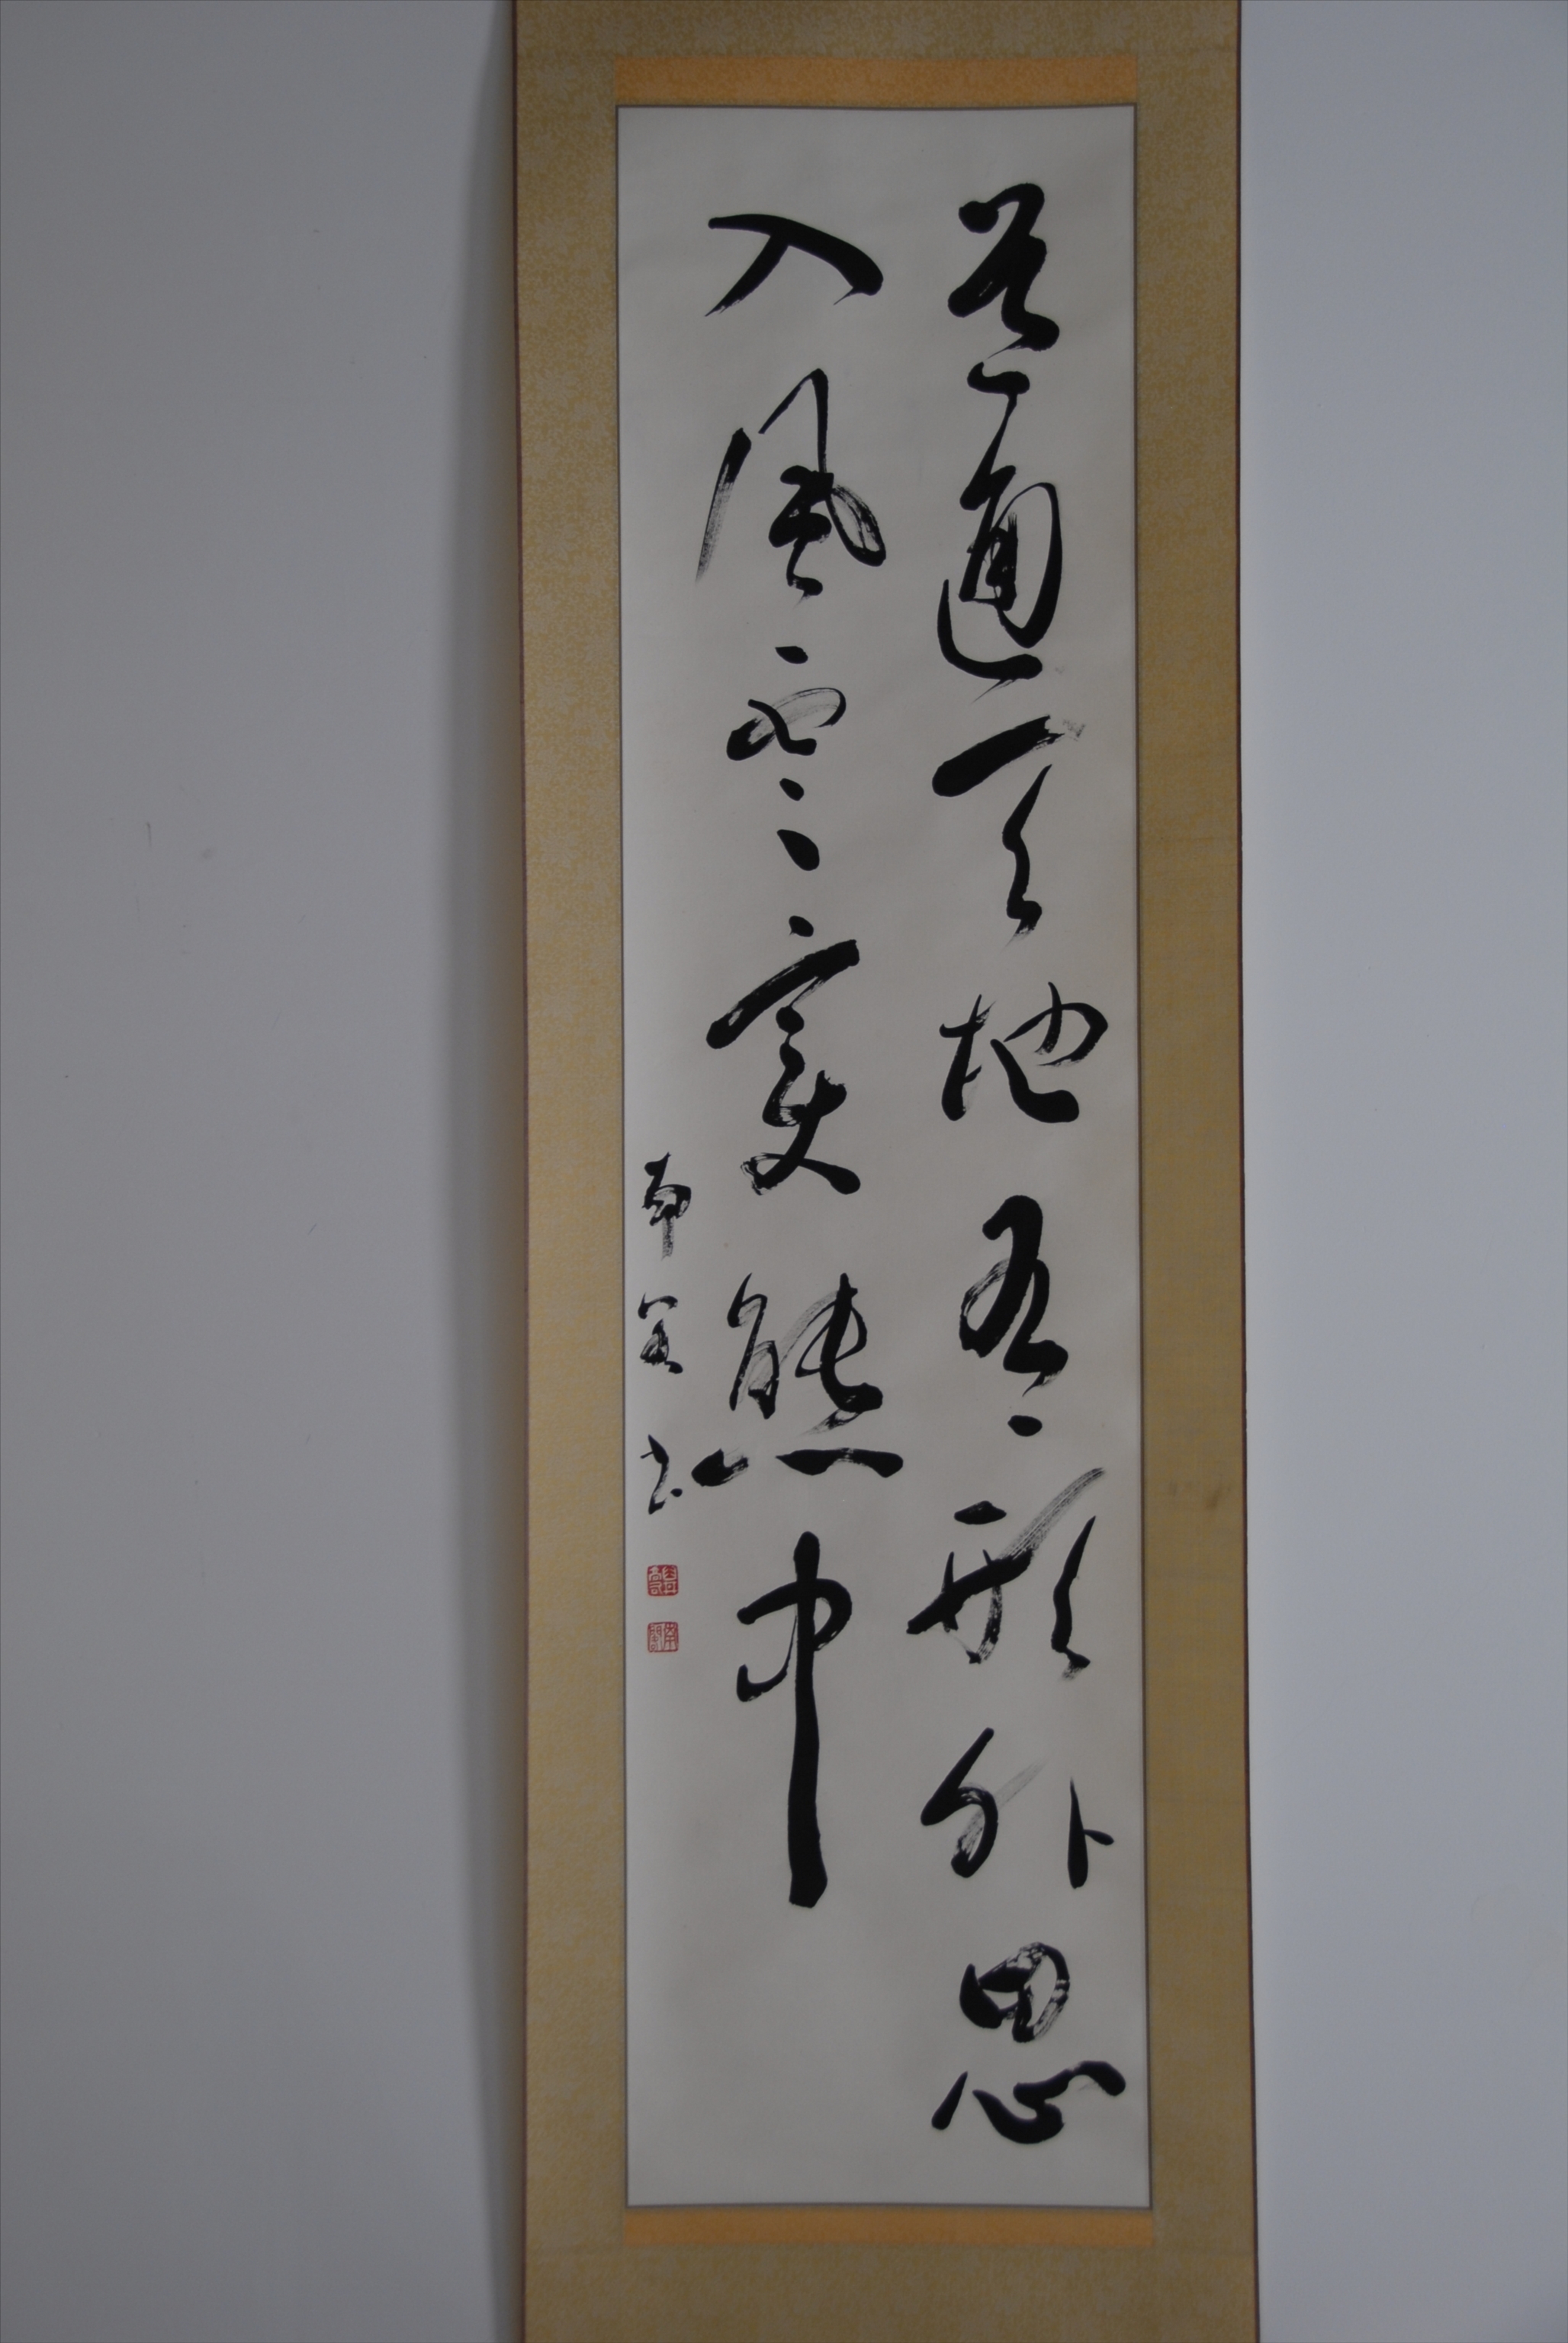 道通天地有形外思
入風雲變態中